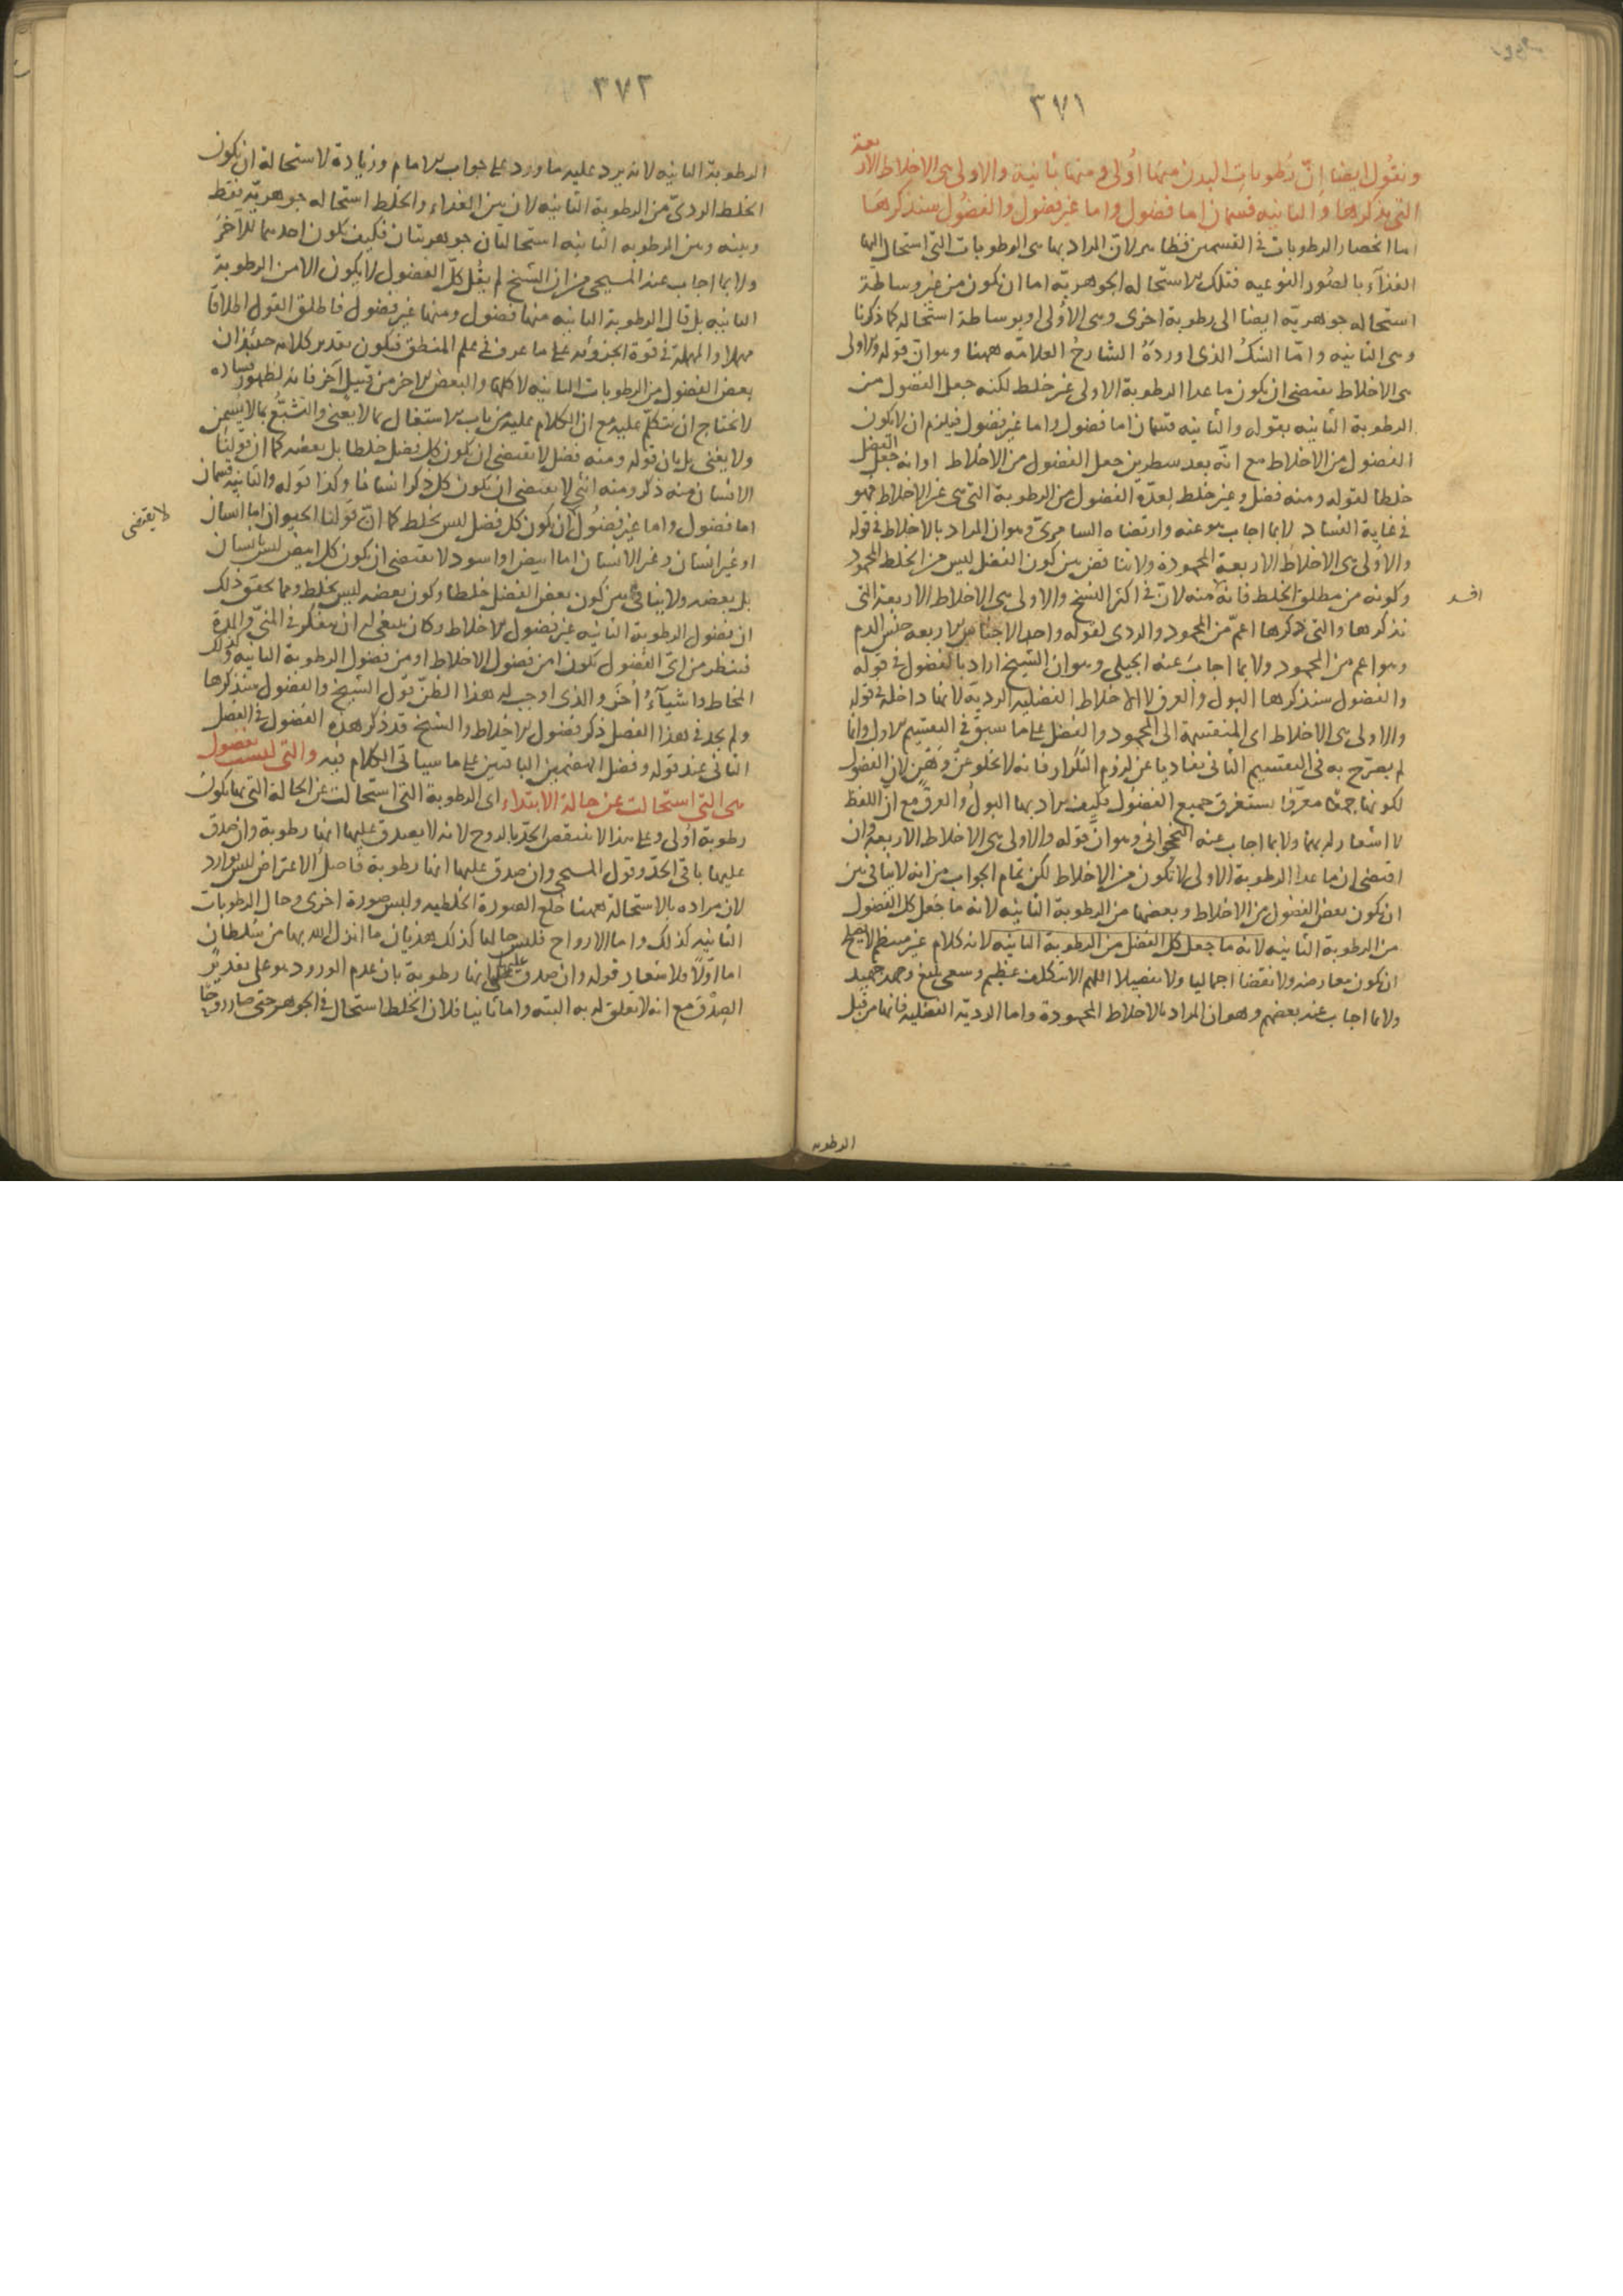 ٣٧١
ونقول ايضا إنّ رُطوبات البدن منها أولى ومنها ثانية والاولى هى الاخلاط الاربعة
التى نذكرها والثانيه قسمان اما فضول واما غير فضول والفضول سنذكرها
اما انحصار الرطوبات فى القسمين فظاهر لان المراد بها هى الرطوبات التى استحال اليها
الغذآء بالصُور النوعيه فتلك الاستحاله الجوهريّة اما ان تكون من غير وساطة
استحاله جوهريّه ايضا الى رطوبة اخرى وهى الأولى او بوساطة استحاله كما ذكرنا
وهى الثانيه وامّا الشكُ الذى اوردهُ الشارحُ العلامّه ههنا وهو انّ قوله والاولى
هى الاخلاط يقتضى ان يكون ما عدا الرطوبة الاولى غير خلط لكنه جعل الفضول من
الرطوبة الثانيه بقوله والثانيه قسمان اما فضول واما غير فضول فيلزم ان لا يكون
الفضول من الاخلاط مع انّه بعد سطرين جعل الفضول من الاخلاط اوانه جعل الفضل
خلطا لقوله ومنه فضل وغير خلط لعدّه الفضول من الرطوبة التى هى غير الاخلاط فهو
فى غاية الفساد لا بما اجاب هو عنه وارتضاه السامرىّ وهو ان المراد بالاخلاط فى قوله
والاولى هى الاخلاط الاربعة المحمودة ولا تناقض بين كون الفضل ليس من الخلط المحمود
وكونه من مطلق الخلط فانه منه لانّ فى اكثر النسخ والاولى هى الاخلاط الاربعة التى
افسد
نذكرها والتى ذكرها اعمّ من المحمود والردى لقوله واحد الاجناس الاربعه جنس الدم
وهو اعم من المحمود ولا بما اجابَ عنه الجيلى وهو ان الشيخ اراد بالفضول فى قوله
والفضول سنذكرها البول والعرق لا الاخلاط الفضليه الرديّه لانها داخلة فى قوله
والاولى هى الاخلاط اى المنقسمة الى المحمود والفضل على ما سبق فى التقسيم الاول وانما
لم يصرّح به فى التقسيم الثانى تفاديا عن لزوم التكرار فانه لا يخلو عن وَهْنٍ لان الفضول
لكونها جمعًا معرّفا يستغرق جميع الفضول فكيف يراد بها البولُ والعرقُ مع ان اللفظ
لا اشعار له بهما ولا بما اجاب عنه النخجوانى وهو انّ قوله والاولى هى الاخلاط الاربعة وان
اقتضى ان ما عدا الرطوبة الاولى لا تكون من الاخلاط لكن تمام الجواب من انه لا ينافى بين
ان يكون بعض الفضول من الاخلاط وبعضها من الرطوبة الثانيه لانه ما جعل كل الفضول
من الرطوبة الثانيه لانه ما جعل كل الفضل من الرطوبة الثانيه لانه كلام غير منتظم لا يصح
ان يكون معارضه ولا نقضا اجماليا ولا تفصيلا اللهم الا بتكلف عظيم وسعى بليغ وجهد جهيد
ولا بما اجاب عنه بعضهم وهو ان المراد بالاخلاط المحمودة واما الرديّه الفضليه فانها من قبل
الرطوبه
٣٧٢
الرطوبة الثانيه لانه يرد عليه ما ورد على جواب الامام وزيادة لاستحالة ان يكون
الخلط الردىّ من الرطوبة الثانيه لان بين الغذاء والخلط استحاله جوهريّه فقط
وبينه وبين الرطوبه الثانيه استحالتان جوهريتان فكيف يكون احدهما للاخر
ولا بما اجاب عنه المسيحى من ان الشيخ لم يقل كلّ الفضول لا يكون الا من الرطوبة
الثانيه بل قال الرطوبة الثانيه منها فضول ومنها غير فضول فاطلق القول اطلاقا
مهملا والمهلة فى قوة الجزوئه على ما عرف فى علم المنطق فيكون تقدير كلامه حينئذ ان
بعض الفضول من الرطوبات الثانيه لا كلها والبعض الاخر من قبيل آخر فانه لظهور فساده
لا نحتاج ان نتكلم عليه مع ان الكلام عليه من باب الاستغال بما لا يعنى والتشبّع بما لا يسمن
ولا يغنى بل بان قوله ومنه فضل لا تقتضى ان يكون كل فضل خلطا بل بعضه كما ان قولنا
الانسان منه ذكر ومنه انثى لا يقتضى ان تكون كل ذكر انسانا وكذا قوله والثانيه قسمان
اما فضول واما غير فضول ان يكون كل فضل ليس بخلط كما انّ قولنا الحيوان اما انسان
لا يقتضى
او غير انسان وغير الانسان اما ابيض او اسود لا يقتضى ان يكون كل ابيض ليس بانسان
بل بعضه ولا ينافى بين كون بعض الفضل خلطا وكون بعضه ليس بخلط ومما يحقق ذلك
ان فضول الرطوبة الثانيه غير فضول الاخلاط وكان ينبغى له ان يفكر فى المنىّ والمِدة
فينظر من اىّ الفضول تكون امن فضول الاخلاط او من فضول الرطوبة الثانيه وكذلك
المخاط واشيآءُ اُخَر والذى اوجب له هذا الظنّ قول الشيخ والفضول سنذكرها
ولم يجد فى هذا الفصل ذكر فضول الاخلاط والشيخ قد ذكر هذه الفضول فى الفصل
الثانى عند قوله وفضل الهضمين الباقيين على ما سياتى الكلام فيه والتى ليست بفضول
هى التى استحالت عن حالة الابتداء اى الرطوبة التى استحالت عن الحالة التى بها يكون
رطوبة أولى وعلى هذا لا ينتقض الحدّ بالروح لانه لا يصدق عليها انها رطوبة وان صدق
عليها باقى الحدّ وقول المسيحى وان صدق عليها انها رطوبة فاصل الاعتراض ليس بوارد
لان مراده بالاستحالة ههنا خلع الصورة الخلطيه ولبس صورة اخرى وحال الرطوبات
الثانيه كذلك واما الارواح فليس حالها كذلك هذيان ما انزل الله بها من سلطان
اما اوّلاً فلاشعار قوله وان صدق عليها انها رطوبة بان عدم الورود هو على تقدير
الصِدْق مع انه لا تعلق له به البته واما ثانيا فلان الخلط استحال فى الجوهر حتى صار روحًا